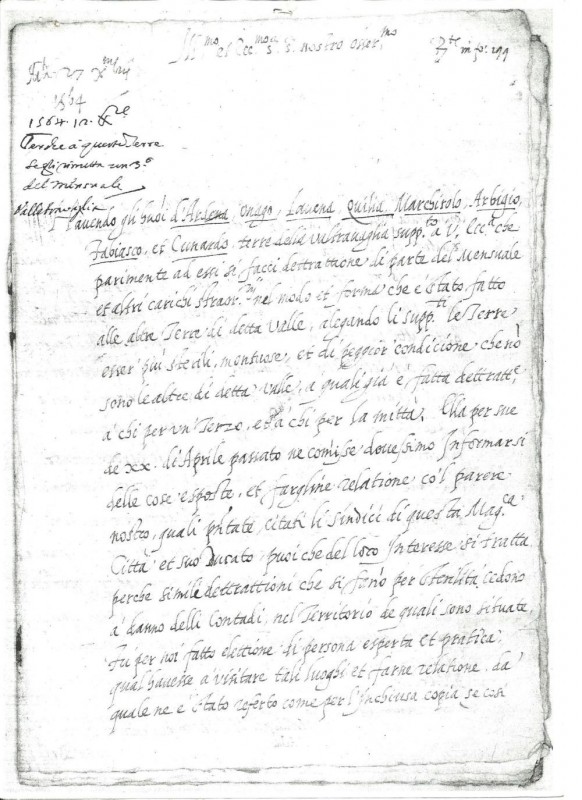 Ill.mo et Ecc.mo S. S. nostro osser.mo
in fo. 199
27
1564
1564. 12. X.bre
Perche a queste Terre
se gli rimetta un 3.o
del mensuale
Valle travaglia
Havendo gli huoi d'Ardena, Onago, Lavena, Quilia, Marchirolo, Arbigio,
Fabiasco, et Cunardo, terre della Valtravaglia supp.to a V. Ecc.a che
parimente ad essi si facci dettrattione di parte del Mensuale
et altri carichi straor.rii nel modo et forma che è stato fatto
alle altre Terre di detta Valle, alegando li supp.ti le Terre
esser più sterili, montuose, et di peggior condicione che nõ
sono le altre di detta Valle, a quali già è fatta dettratt.e
a chi per un Terzo, et a chi per la mittà, Ella per sue
de XX. di Aprile passato ne comise dovessimo Informarsi
delle cose esposte, et fargline relatione co'l parere
nostro, quali pñtate, citati li sindici di questa Mag.ca
Città et suo Ducato, puoi che del loco Interesse si tratta
perche simile dettrattioni che si fano per sterilità cedono
a danno delli Contadi, nel Territorio de quali sono situate,
fu per noi fatto elettione di persona esperta et pratica
qual havesse a visitare tali luoghi et farne relatione, da
quale ne è stato referto come per l'Inchiusa copia se cosi